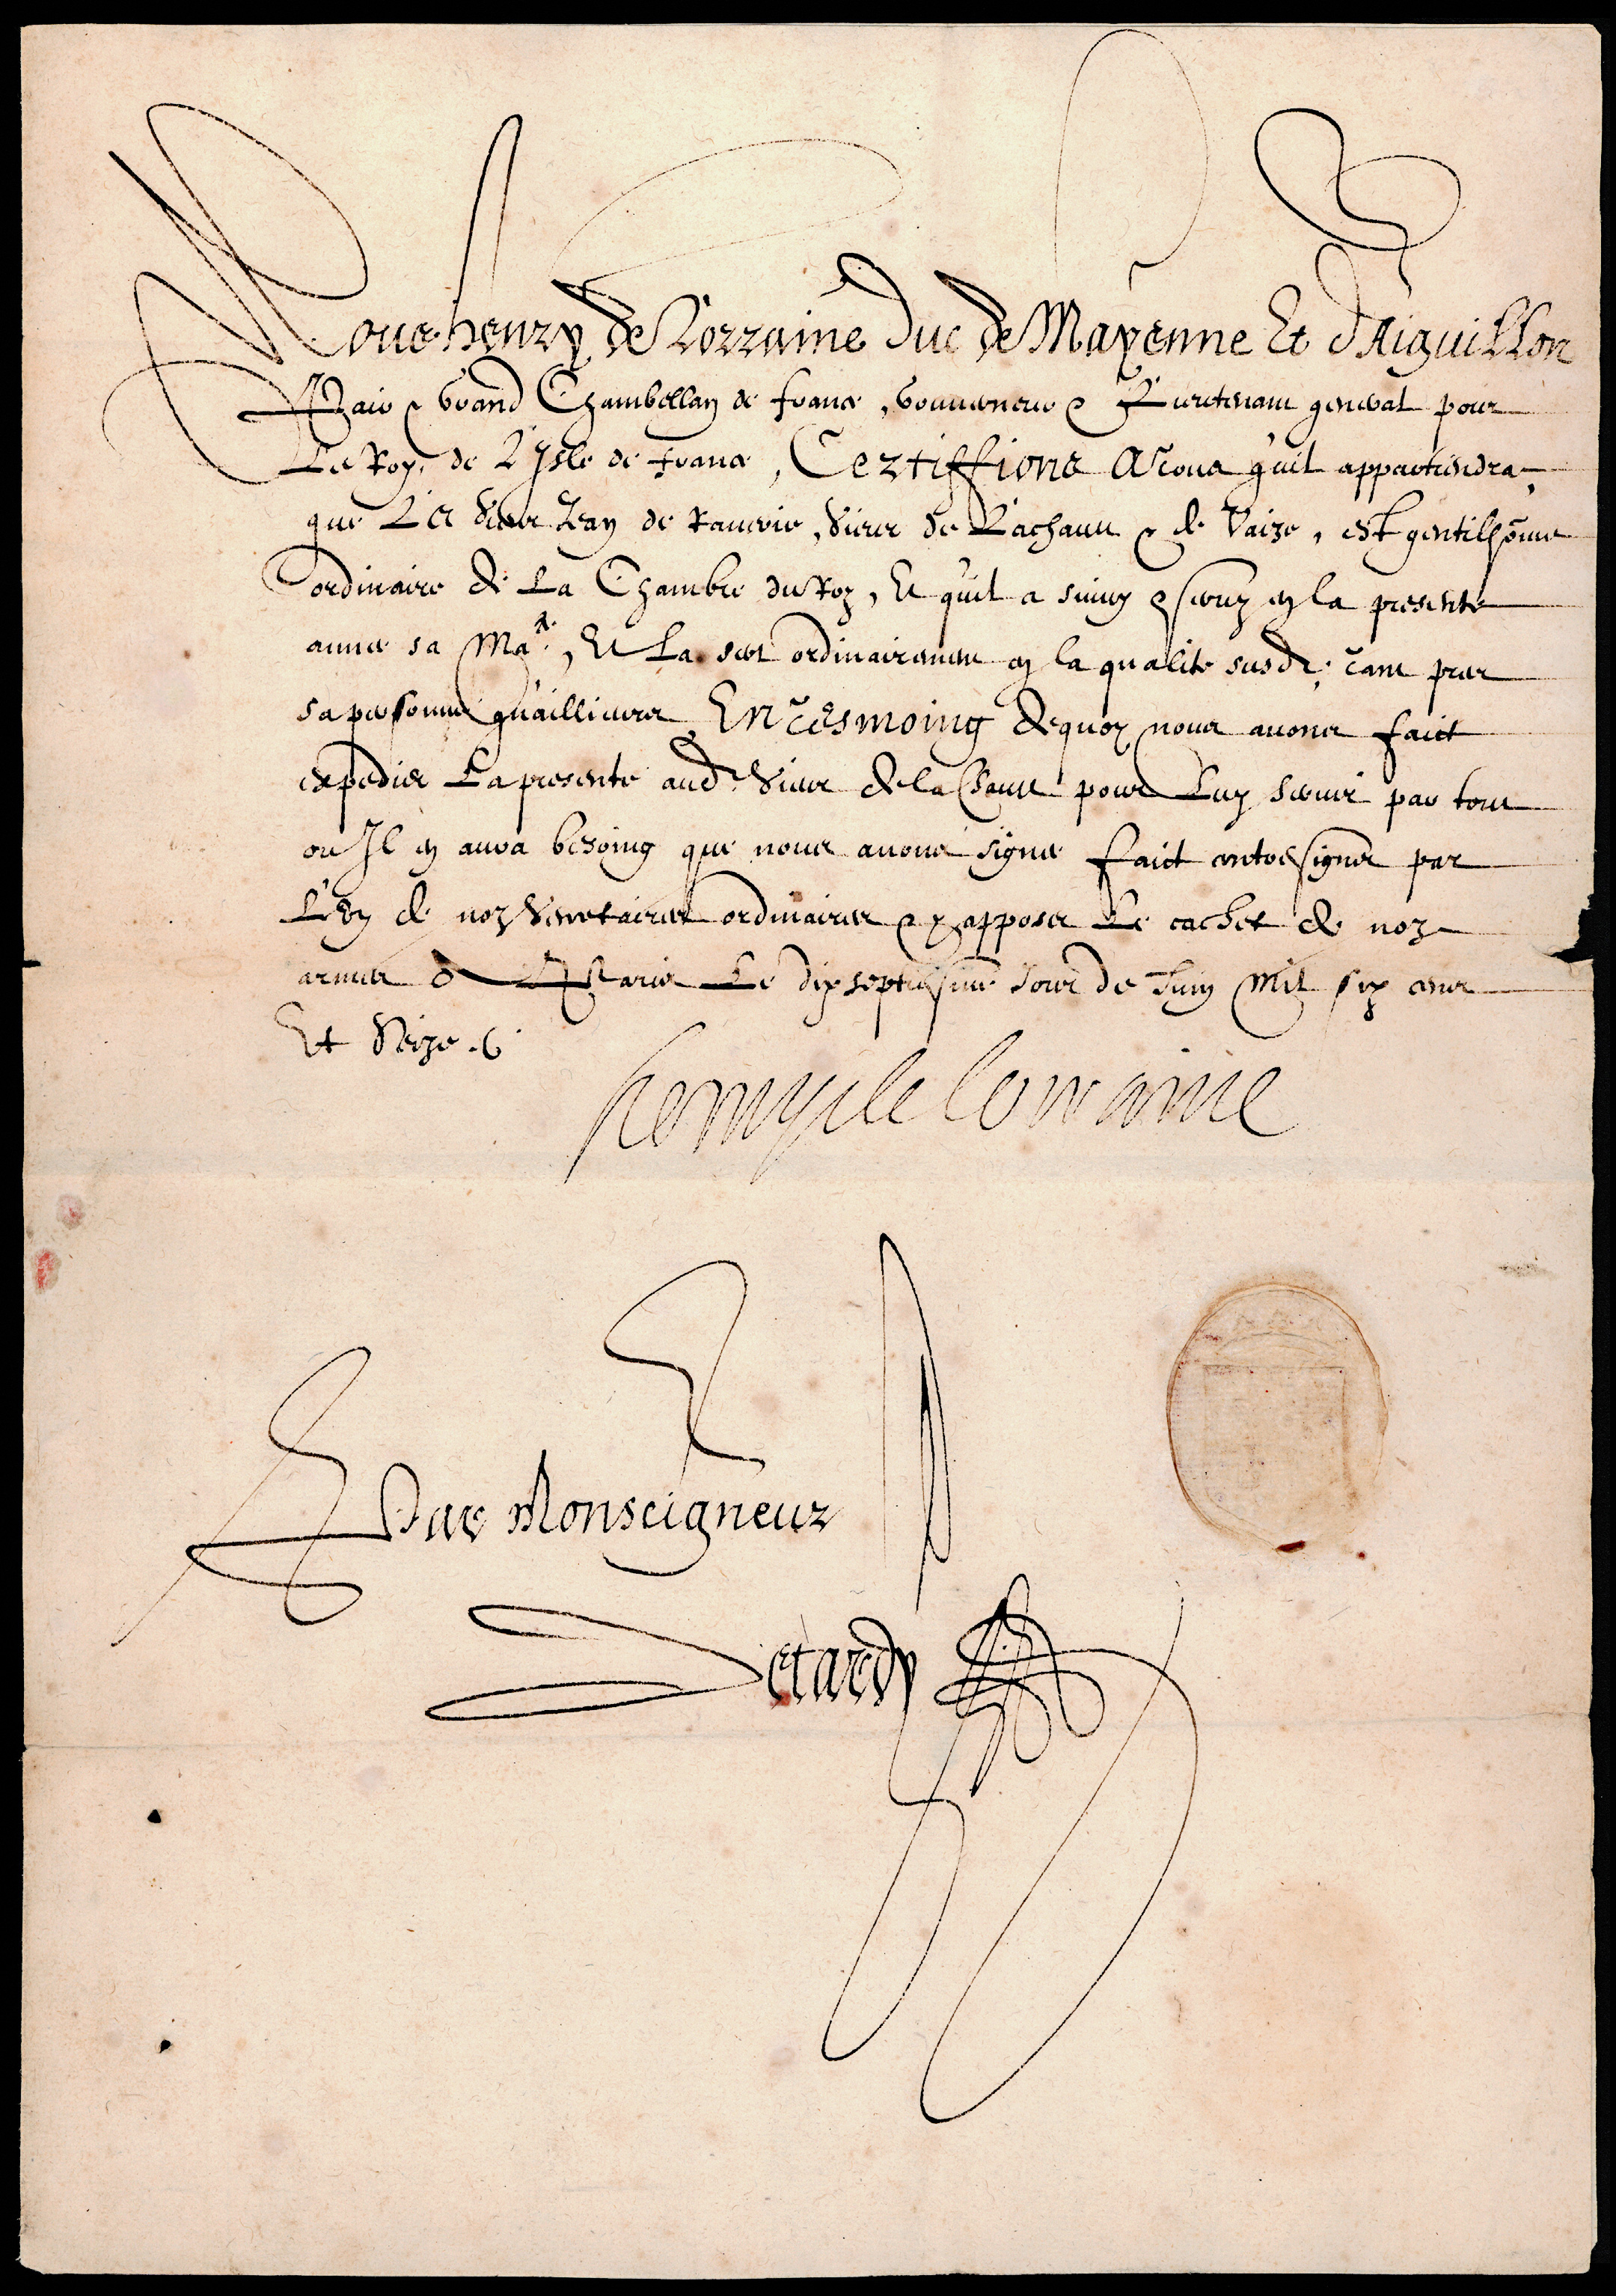 Nous henry de Lorraine Duc de Mayenne Et d'Aiguillon
Pair & Grand Chambellan de france, Gouverneur & Lieutenant general pour
Le Roy, de L'Isle de france, Certiffions A tous qu'il appartiendra
que Le Sieur Jean de , Sieur de Lachaux & de Vaize, est gentilhõme
ordinaire de La Chambre du Roy, Et qu'il a suivy & servy en la presente
annee sa Ma.te, Et La sert ordinairement en la qualite susd.e tant pres
sa personne qu'aillieurs, En tesmoing dequoy nous avons faict
expedier La presente aud. Sieur de la Chaux pour Luy servir par tout
ou Il en aura besoing que nous avons signee faict contresigner par
L'un de noz Secretaires ordinaires & y apposer Le cachet de noz
armes A Paris Le dix septiesme Jour de Juin Mil six cens
Et Seize .
henry de lorraine
Par Monseigneur
Detardy